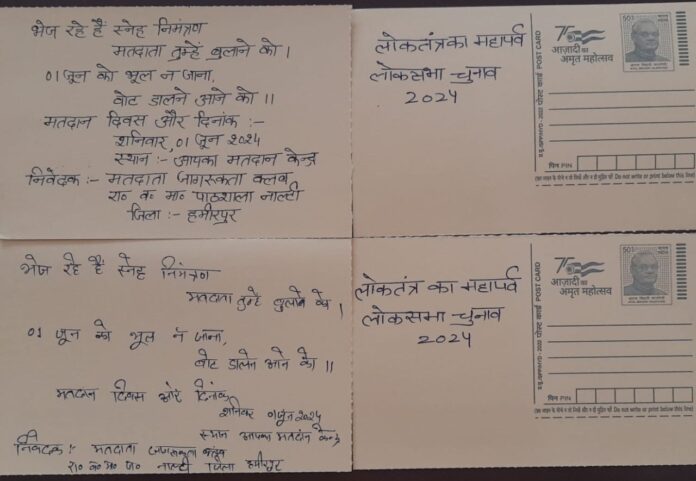 भेज रहे हैं स्नेह निमंत्रण
मतदाता तुम्हें बुलाने को।
01 जून को भूल न जाना,
वोट डालने आने को।।
मतदान दिवस और दिनांक :-
शनिवार, 01 जून 2024
स्थान :- आपका मतदान केन्द्र
निवेदक :- मतदाता जागरूकता क्लब,
रा० व० मा० पाठशाला नाल्टी
जिला :- हमीरपुर
लोकतंत्र का महापर्व
लोकसभा चुनाव
2024
पोस्ट कार्ड POST CARD
75
आज़ादी का
अमृत महोत्सव
501
पिन PIN
भेज रहे हैं स्नेह निमंत्रण
मतदाता तुम्हें बुलाने को।
01 जून को भूल न जाना,
वोट डालने आने को।।
मतदान दिवस और दिनांक
शनिवार 01 जून 2024
स्थान आपका मतदान केन्द्र
निवेदक: मतदाता जागरूकता क्लब
रा० व० मा० पा० नाल्टी जिला हमीरपुर
लोकतंत्र का महापर्व
लोकसभा चुनाव
2024
पोस्ट कार्ड POST CARD
75
आज़ादी का
अमृत महोत्सव
501
पिन PIN